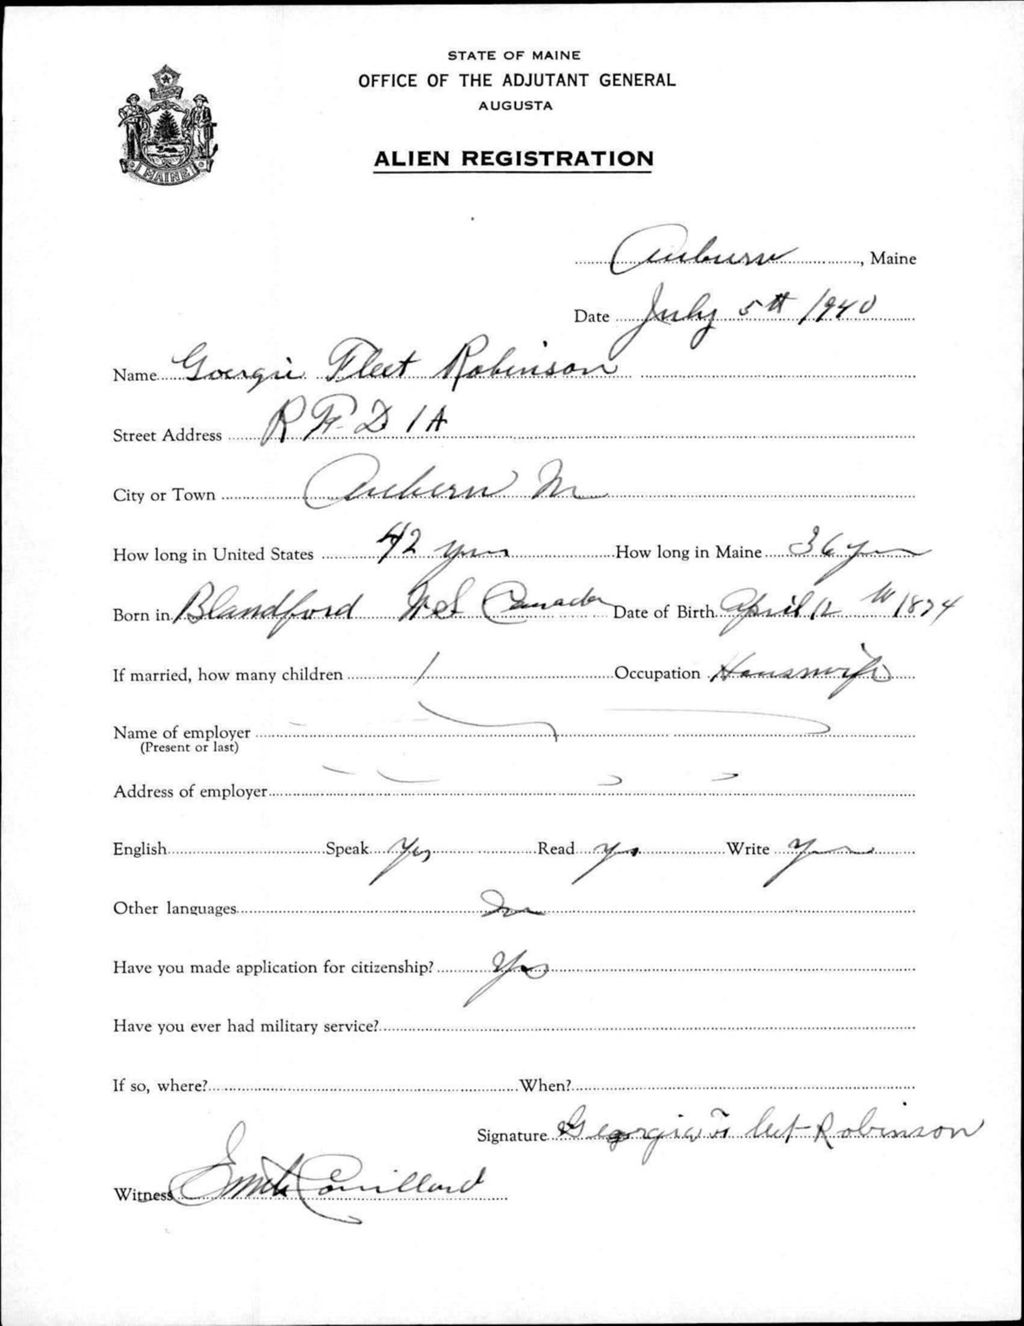 STATE OF MAINE
OFFICE OF THE ADJUTANT GENERAL
AUGUSTA
ALIEN REGISTRATION
MAINE
Auburn, Maine
Date July 5th 1940
Name Goergie Fleet Robinson
Street Address R F D 1A
City or Town Auburn M
How long in United States 42 yrs How long in Maine 36 yrs
Born in Blandford N S Canada Date of Birth April 12 1874
If married, how many children 1 Occupation Housewife
Name of employer
(Present or last)
Address of employer
English Speak Yes Read Yes Write Yes
Other languages
Have you made application for citizenship? Yes
Have you ever had military service?
If so, where? When?
Signature Georgia Fleet Robinson
Witness